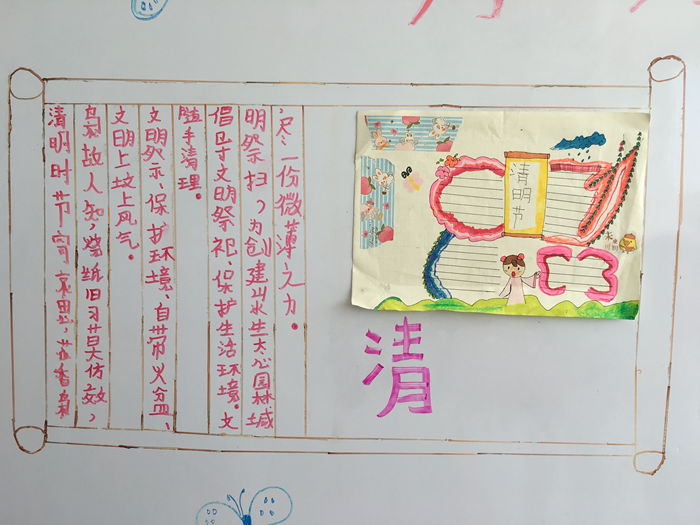 清明时节寄哀思，花香果
奠故人知，烧纸旧习莫仿效，
文明上坟上风气。
文明祭示、保护环境、自带火盆、
随手清理。
倡导文明祭祀，保护生活环境。文
明祭扫，为创建山水生态园林城
尽一份微薄之力。
清明节
清